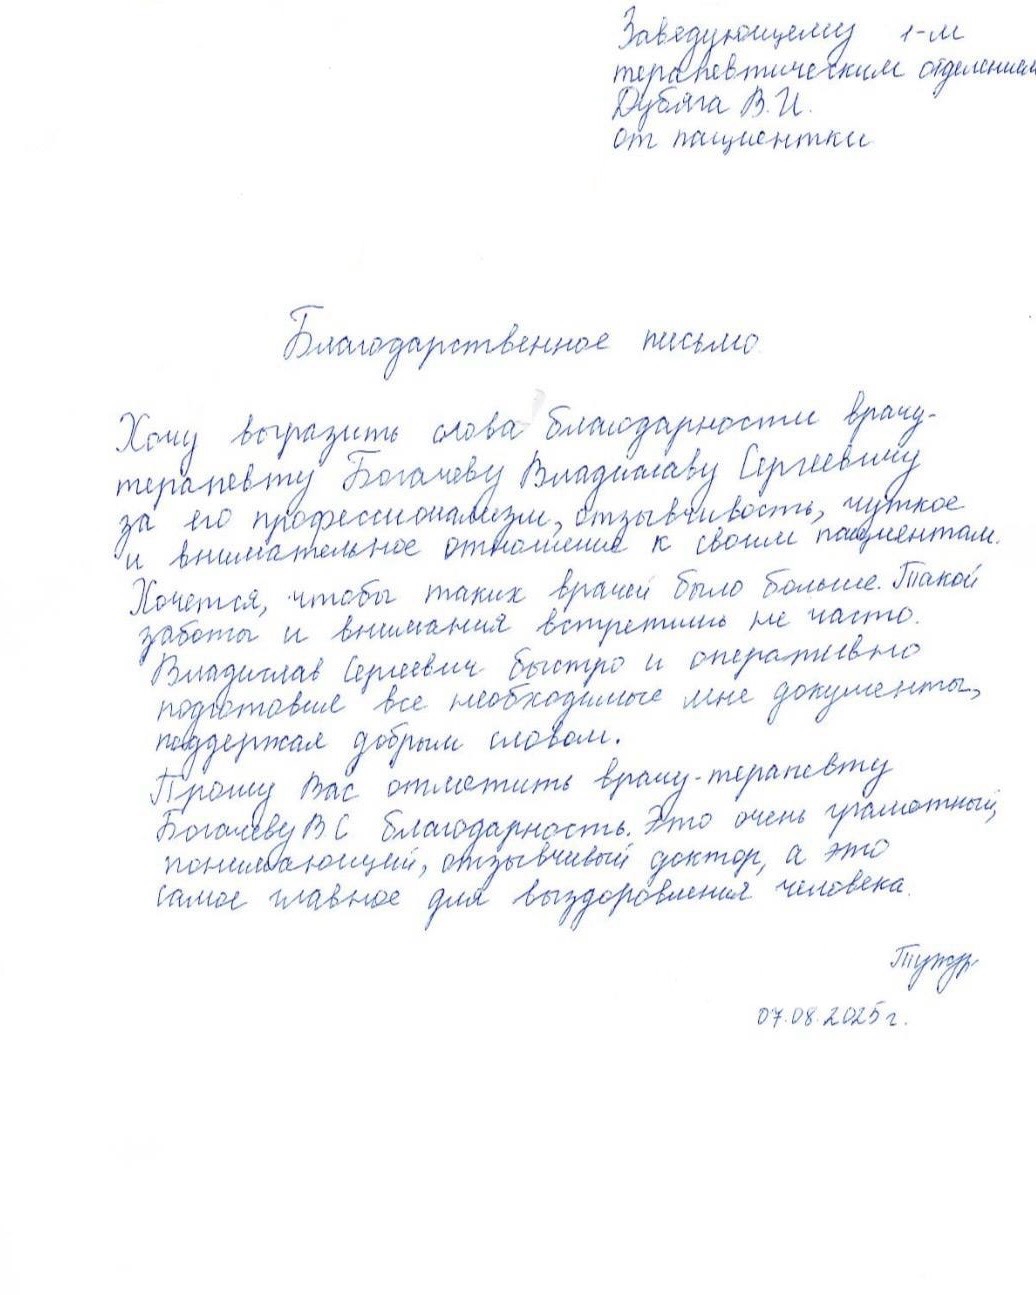 Заведующему 1-м
терапевтическим отделением
Дубяга В.И.
от пациентки
Благодарственное письмо
Хочу выразить слова благодарности врачу-
терапевту Богачеву Владиславу Сергеевичу
за его профессионализм, отзывчивость, чуткое
и внимательное отношение к своим пациентам.
Хочется, чтобы таких врачей было больше. Такой
заботы и внимания встретишь не часто.
Владислав Сергеевич быстро и оперативно
подготовил все необходимые мне документы,
поддержал добрым словом.
Прошу Вас отметить врачу-терапевту
Богачеву В С благодарность. Это очень грамотный,
понимающий, отзывчивый доктор, а это
самое главное для выздоровления человека.
07.08.2025г.